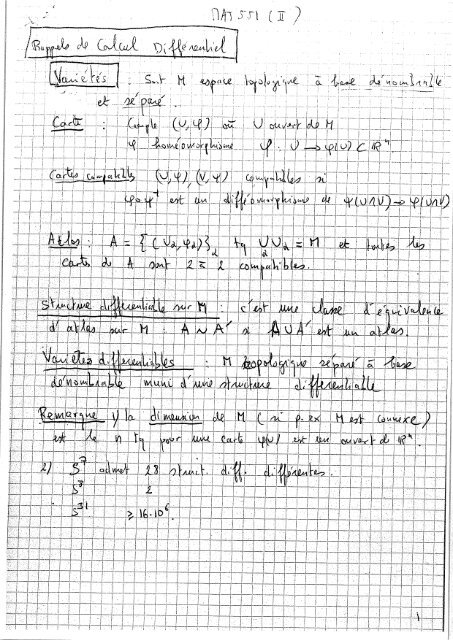 MAT 551 (II)
Rappels de Calcul Différentiel
Variétés : Soit M espace topologique à base dénombrable
et séparé.
Carte : Couple (U, φ) où U ouvert de M
φ homéomorphisme φ : U → φ(U) ⊂ ℝⁿ
Cartes compatibles (U, φ), (V, ψ) compatibles si
φ∘ψ⁻¹ est un difféomorphisme de ψ(U∩V) → φ(U∩V)
Atlas : A = {(U_α, φ_α)}_α tq ∪_α U_α = M et toutes les
cartes de A sont 2 à 2 compatibles.
Structure différentiable sur M : c'est une classe d'équivalence
d'atlas sur M : A ~ A' si A∪A' est un atlas.
Variétés différentiables : M topologique séparé à base
dénombrable muni d'une structure différentiable
Remarque 1) la dimension de M (si p.ex M est connexe)
est le n tq pour une carte φ(U) est un ouvert de ℝⁿ.
2) S⁷ admet 28 struct. diff. différentes.
S⁸ 2
S³¹ ≥ 16.10⁶.
1